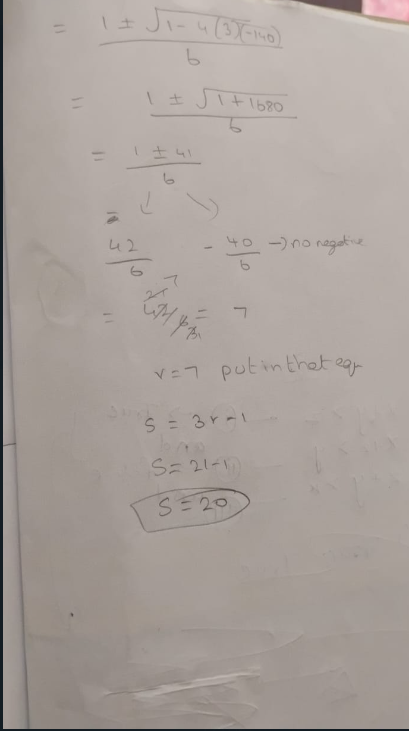 = 1 ± √1 - 4(3)(-140) / 6
= 1 ± √1 + 1680 / 6
= 1 ± 41 / 6
=
42/6 - 40/6 → no negative
= 21 7 42/6 3 1 = 7
r = 7 put in that eqr
S = 3r - 1
S = 21 - 1
S = 20